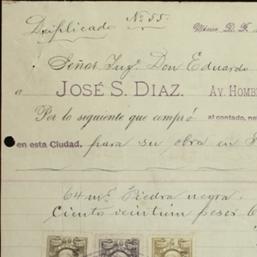 Duplicado Nº 55. México D. F.
Señor Ingº Don Eduardo
a JOSÉ S. DIAZ. AV. HOMB
Por lo siguiente que compró al contado, ne
en esta Ciudad. para su obra en
64 m² Piedra negra
Ciento veintiun pesos